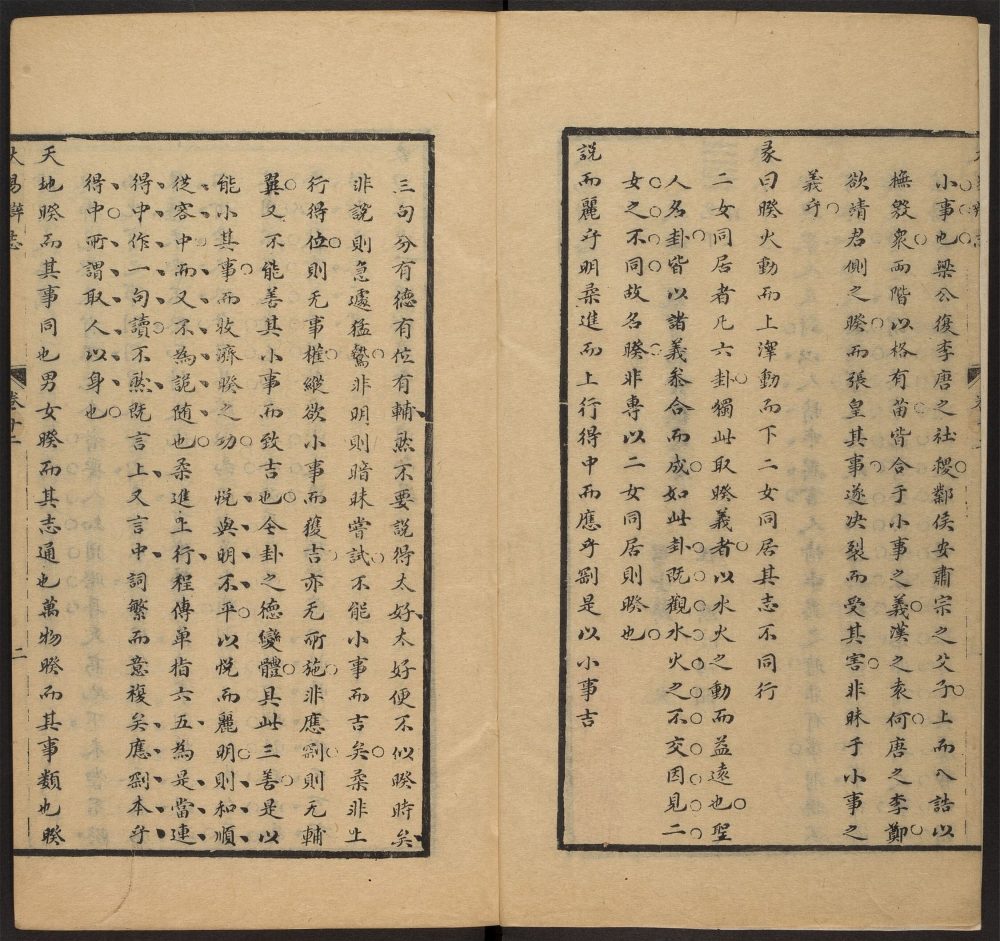 小事也梁公復李唐之社稷鄴侯安肅宗之父子上而八誥以
撫殷衆兩階以格有苗皆合于小事之義漢之袁何唐之李鄭
欲靖君側之睽而張皇其事遂决裂而受其害非昧于小事之
義乎
彖曰睽火動而上澤動而下二女同居其志不同行
二女同居者凡六卦獨此取睽義者以水火之動而益遠也聖
人名卦皆以諸義叅合而成如此卦既觀水火之不交因見二
女之不同故名睽非專以二女同居則睽也
説而麗乎明柔進而上行得中而應乎剛是以小事吉
三句分有德有位有輔然不要説得太好太好便不似睽時矣
非説則急遽猛鷙非明則暗昧嘗試不能小事而吉矣柔非上
行得位則无事權縱欲小事而獲吉亦无所施非應剛則无輔
翼又不能善其小事而致吉也仝卦之德變體具此三善是以
能小其事而收濟睽之功 悅與明不平以悅而麗明則和順
從容中而又不為詭随也柔進上行程傳单指六五為是當連
得中作一句讀不然既言上又言中詞繁而意複矣應剛本乎
得中所謂取人以身也
天地睽而其事同也男女睽而其志通也萬物睽而其事類也睽
大易辯志
卷十二
二